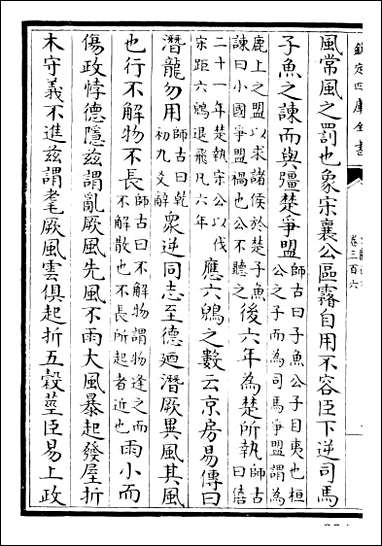 欽定四庫全書
卷三百六
風常風之罰也象宋襄公區霿自用不容臣下逆司馬
子魚之諫而與彊楚爭盟師古曰子魚公子目夷也桓公之子而為司馬爭盟謂為
鹿上之盟以求諸侯於楚子魚諫曰小國爭盟禍也公不聽之後六年為楚所執師古曰僖
二十一年楚執宋公以伐宋距六鶂退飛凡六年應六鶂之數云京房易傳曰
潛龍勿用師古曰乾初九爻辭衆逆同志至德廼潛厥異風其風
也行不解物不長師古曰不解物謂物逢之而不解散也不長所起者近也雨小而
傷政悖德隱兹謂亂厥風先風不雨大風暴起發屋折
木守義不進兹謂耄厥風雲俱起折五穀莖臣易上政